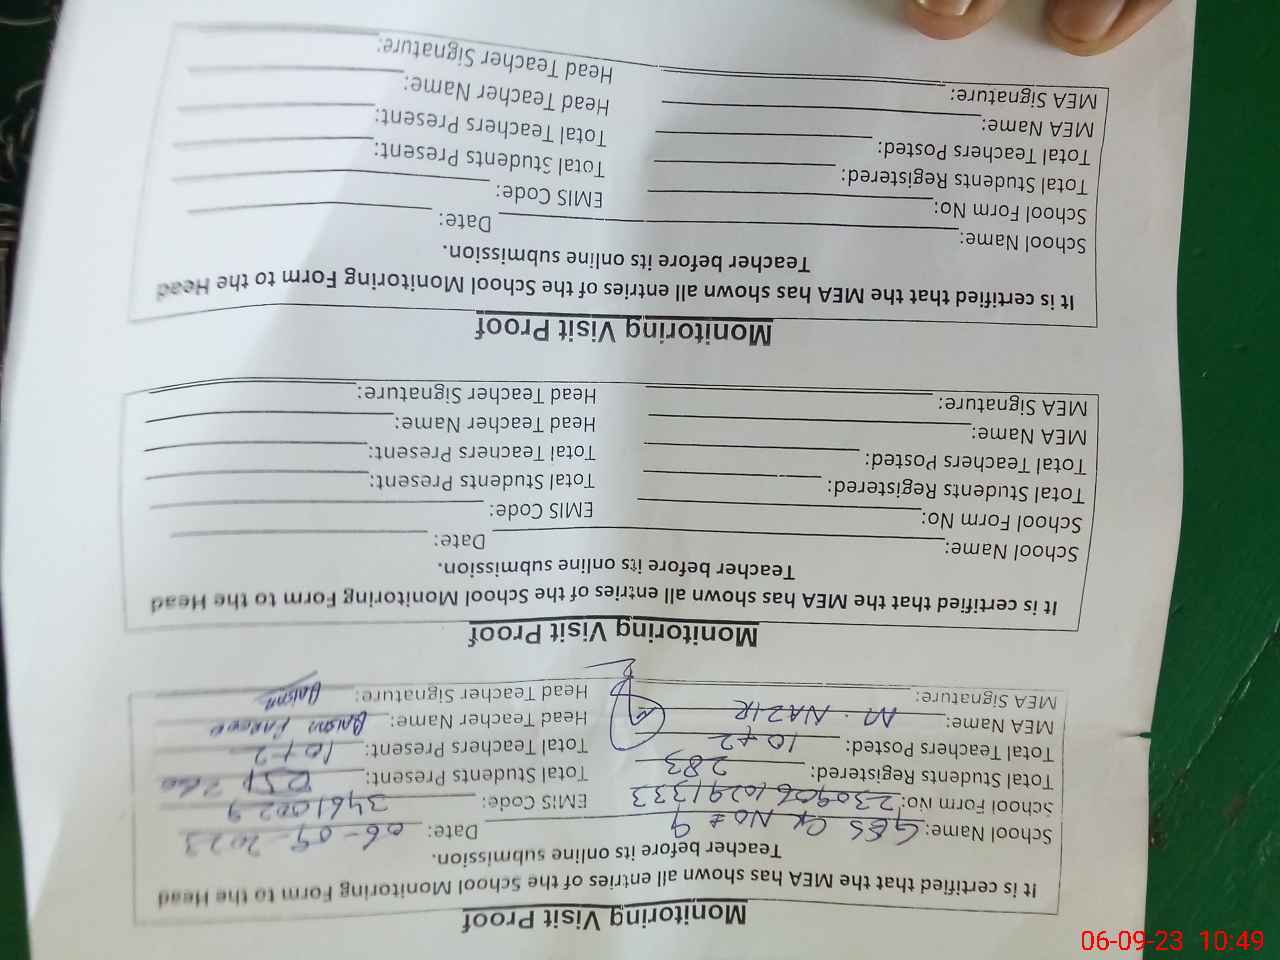 Monitoring Visit Proof
It is certified that the MEA has shown all entries of the School Monitoring Form to the Head
Teacher before its online submission.
School Name: GES CK NO # 9 Date: 06-09-2023
School Form No: 23090610291333 EMIS Code: 34610029
Total Students Registered: 283 Total Students Present:
Total Teachers Posted: 10+2 Total Teachers Present: 10+2
MEA Name: M. NAZIR Head Teacher Name:
MEA Signature: Head Teacher Signature:
Monitoring Visit Proof
It is certified that the MEA has shown all entries of the School Monitoring Form to the Head
Teacher before its online submission.
School Name: Date:
School Form No: EMIS Code:
Total Students Registered: Total Students Present:
Total Teachers Posted: Total Teachers Present:
MEA Name: Head Teacher Name:
MEA Signature: Head Teacher Signature:
Monitoring Visit Proof
It is certified that the MEA has shown all entries of the School Monitoring Form to the Head
Teacher before its online submission.
School Name: Date:
School Form No: EMIS Code:
Total Students Registered: Total Students Present:
Total Teachers Posted: Total Teachers Present:
MEA Name: Head Teacher Name:
MEA Signature: Head Teacher Signature:
06-09-23 10:49